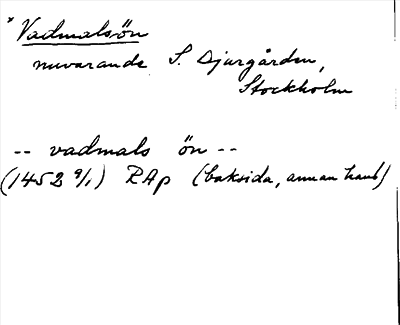 * Vadmalsön
nuvarande S. Djurgården,
Stockholm
-- vadmals ön --
(1452 9/1) RAp (baksida, annan hand)